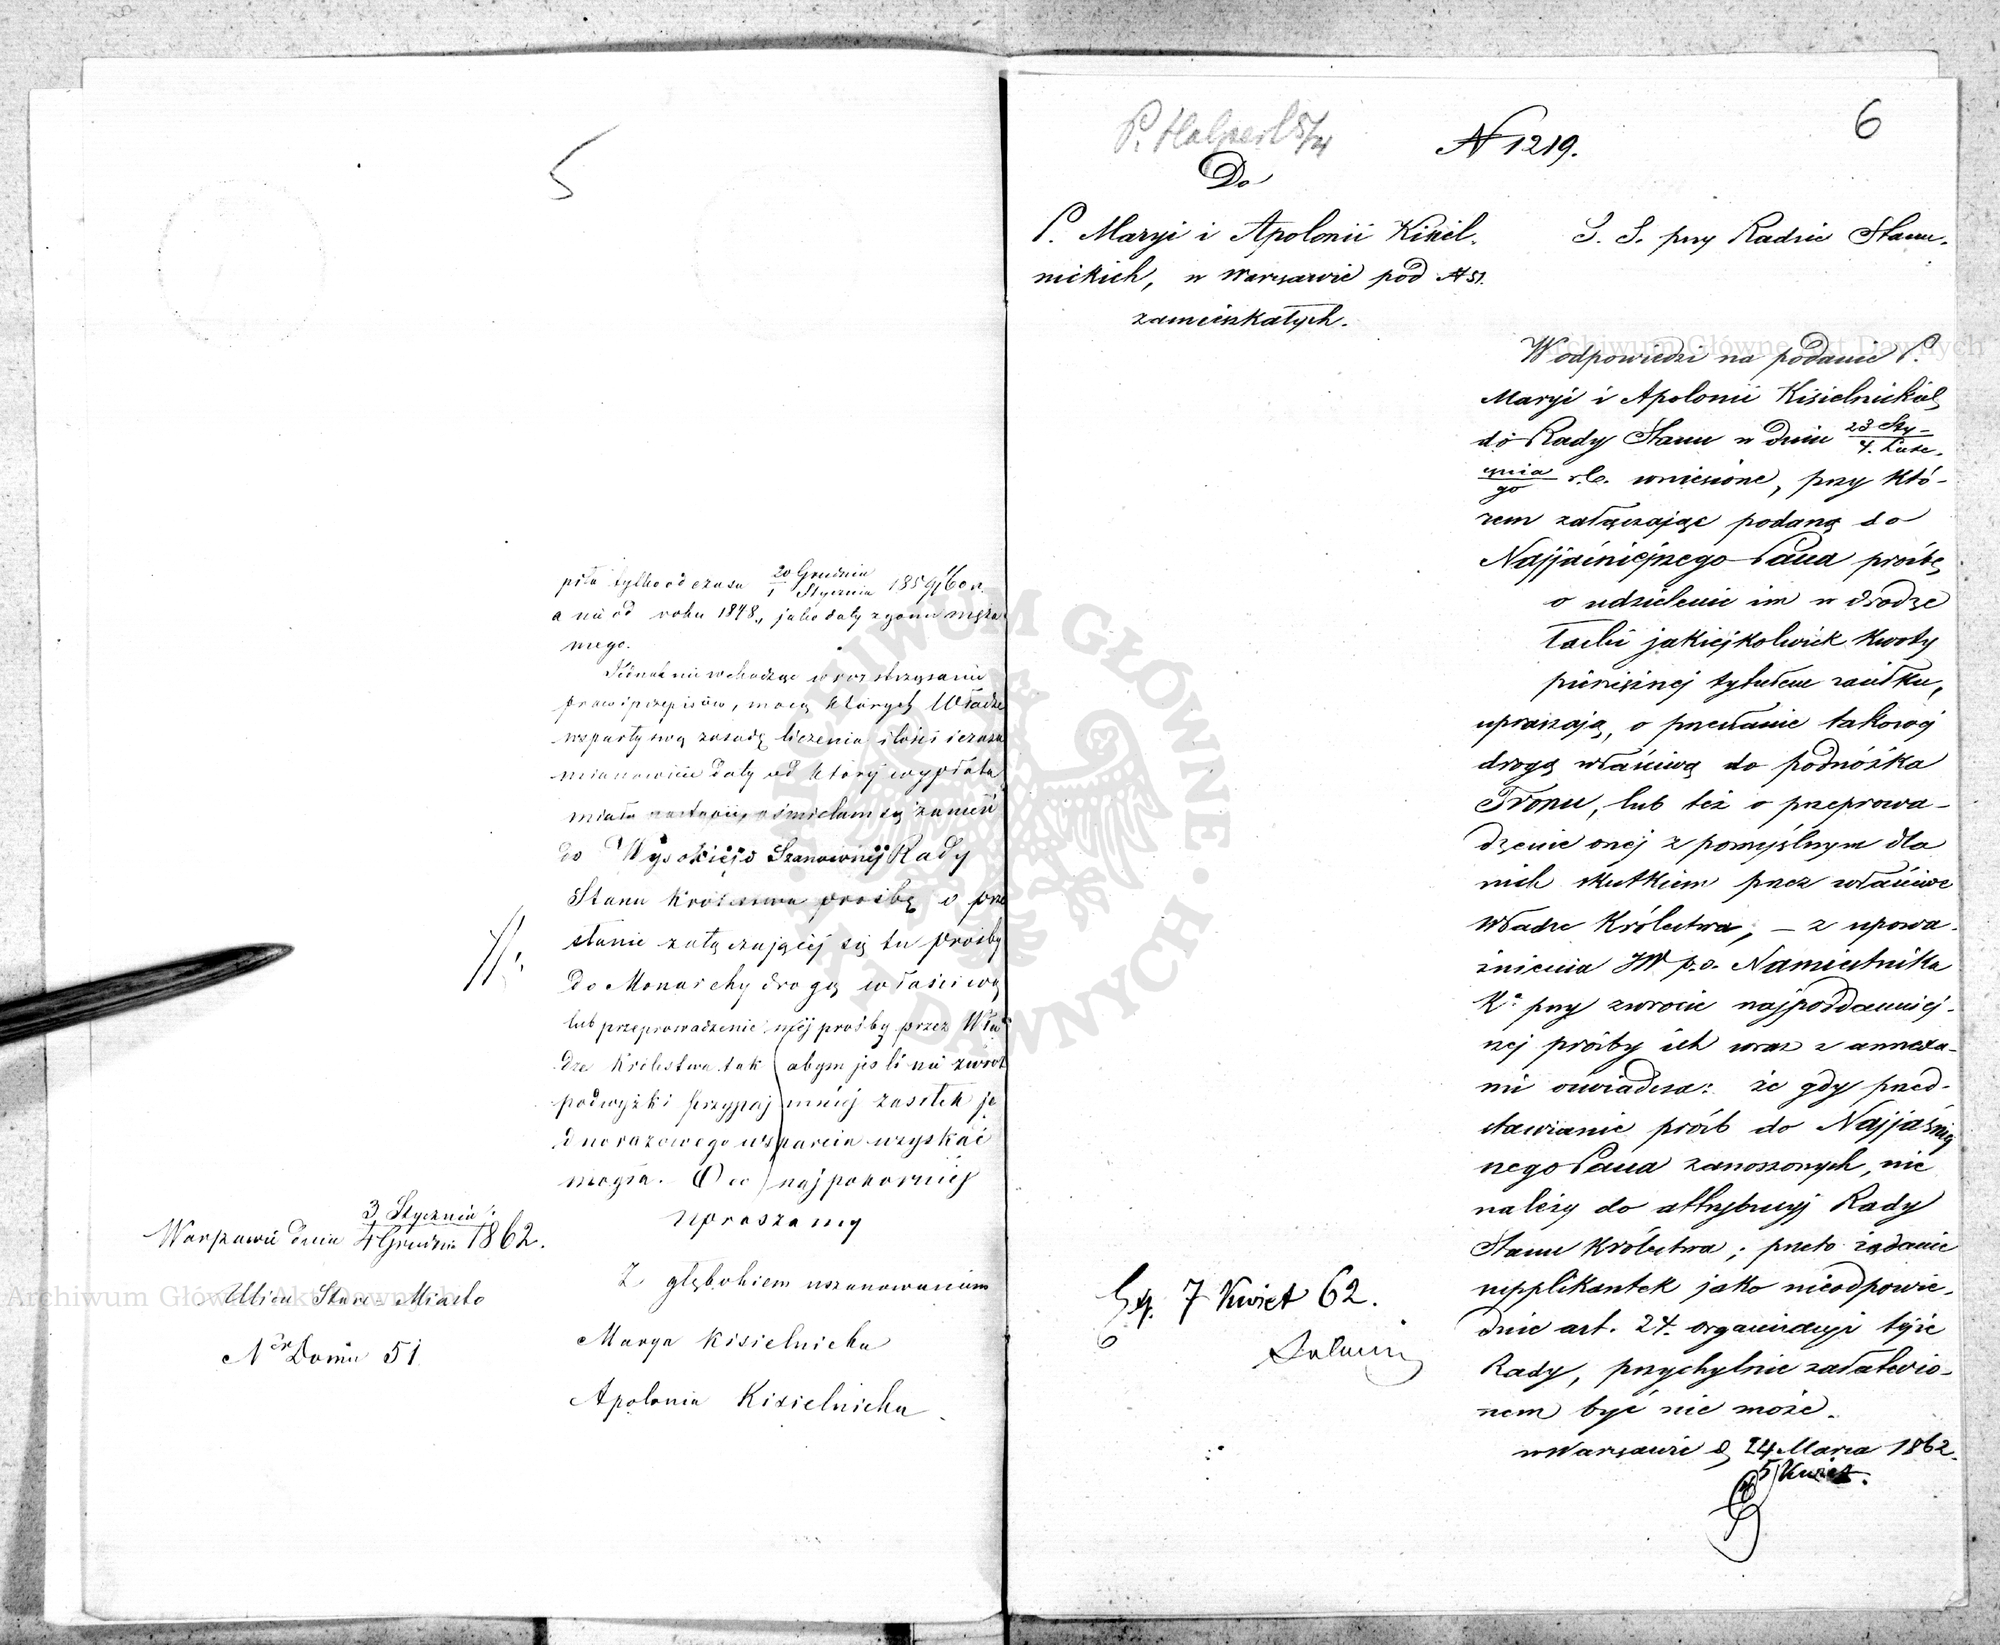 5
piła tylko od czasu 20 Grudnia / 1 Stycznia 1859/60 r.
a nie od roku 1848, jako daty zgonu męża
mego.
Jednak nie wchodząc w rozstrzyganie
praw i przepisów, mocą których Władze
wsparły swą zasadę liczenia ilości i czasu
mianowicie daty od której wypłata
miała nastąpić, ośmielam się zanieść
do Wysokiej i Szanownej Rady
Stanu Królestwa prośbę o prze
słanie załączającej się tu prośby
do Monarchy drogą właściwą
lub przeprowadzenie mej prośby przez Wła
dze Królestwa tak abym jeśli nie zwrot
podwyżki przynajmniej zasiłek je
dnorazowego wsparcia uzyskać
mogła. O co najpokorniej
upraszamy
Z głębokiem uszanowaniem
Marya Kisielnicka
Apolonia Kisielnicka
Warszawa dnia 3 Stycznia / 4 Grudnia 1862.
Ulica Stare-Miasto
Ner Domu 51
P. Halpert 5/4
N 1219.
6
Do
P. Maryi i Apolonii Kisiel-
nickich, w Warszawie pod N 51.
zamieszkałych.
S. S. przy Radzie Stanu.
W odpowiedzi na podanie P.
Maryi i Apolonii Kisielnickich
do Rady Stanu w dniu 23 Sty- / 4. Lute-
cznia / go r.b. wniesione, przy któ-
rem załączając podaną do
Najjaśniejszego Pana prośbę
o udzielenie im w drodze
łaski jakiejkolwiek kwoty
pieniężnej tytułem zasiłku,
upraszają, o przesłanie takowej
drogą właściwą do podnóżka
Tronu, lub też o przeprowa-
dzenie onej z pomyślnym dla
nich skutkiem przez właściwe
Władze Królestwa; – z upowa-
żnienia JW p.o. Namiestnika
Ka przy zwrocie najpoddanniej-
szej prośby ich wraz z annexa-
mi oświadcza: że gdy przed-
stawianie próśb do Najjaśniej
szego Pana zanoszonych, nie
należy do attrybucyj Rady
Stanu Królestwa; przeto żądanie
supplikantek jako nieodpowie-
dnie art. 24. organizacyi tejże
Rady, przychylnie załatwio-
nem być nie może.
w Warszawie d. 24 Marca 1862.
5 Kwiet.
Ex. 7 Kwiet 62.
Archiwum Główne Akt Dawnych
Archiwum Główne Akt Dawnych
ARCHIWUM GŁÓWNE AKT DAWNYCH